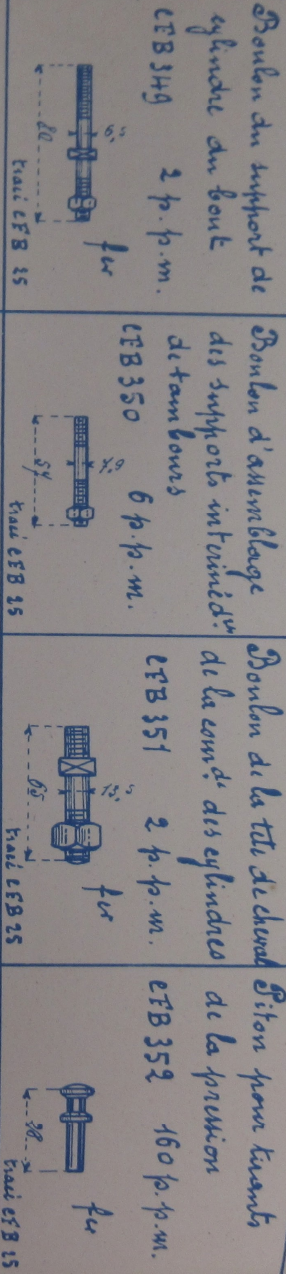 Boulon du support de
cylindre du bout
CFB 349 2 p.p.m.
fer
80
tracé CFB 25
Boulon d'assemblage
des supports interméd.res
de tambours
CFB 350 6 p.p.m.
7,9
54
tracé CFB 25
Boulon de la tête de cheval
de la com.de des cylindres
CFB 351 2 p.p.m.
fer
tracé CFB 25
Piton pour tirants
de la pression
CFB 352 160 p.p.m.
fer
38
tracé CFB 25